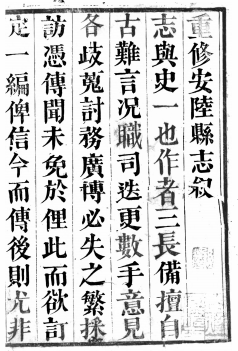 重修安陸縣志叙
志與史一也作者三長備擅自
古難言况職司迭更數手意見
各歧蒐討務廣博必失之繁採
訪憑傳聞未免於俚此而欲訂
定一編俾信今而傳後則尤非